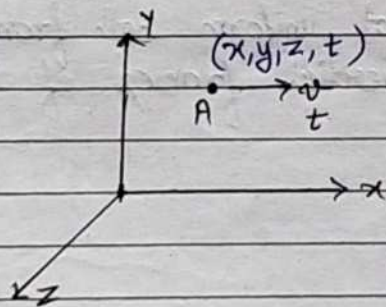 y
(x,y,z,t)
A
v
t
x
z